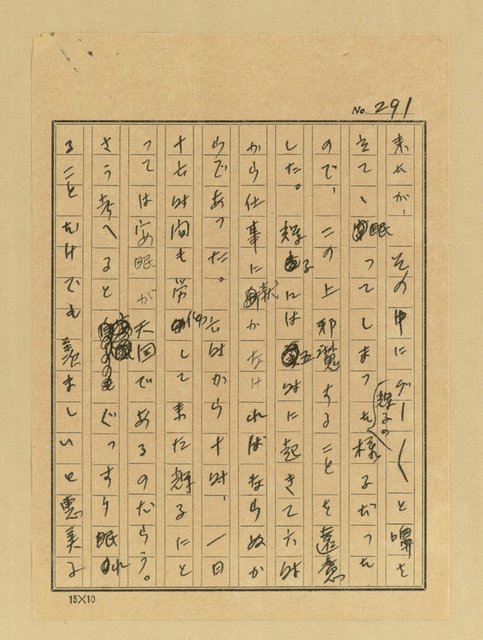 No. 291
来たが、その中にグー〱と嚊を
立て、眠ってしまった静子の様子だった
ので、この上邪魔することを遠慮
した。静子には五時に起きて六時
から仕事に就かなければならぬか
らであった。六時から十時、一日
十六時間も労働して来た静子にと
っては安眠が天国であるのだらう。
さう考へるとぐっすり眠れ
ることだけでも羨ましいと恵美子
15×10